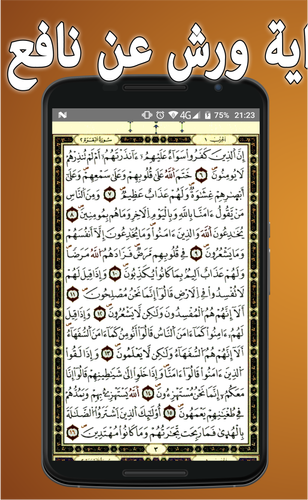 اية ورش عن نافع
4G 75% 21:23
الحزب ١ سورة البقرة ٢
إن الذين كفروا سواء عليهم ءآنذرتهم أم لم تنذرهم
لا يومنون ختم الله على قلوبهم وعلى سمعهم وعلى
أبصرهم غشوة ولهم عذاب عظيم ومن الناس
من يقول ءامنا بالله وباليوم الاخر وما هم بمومنين
يخدعون الله والذين ءامنوا وما يخدعون إلا أنفسهم
وما يشعرون في قلوبهم مرض فزادهم الله مرضا
ولهم عذاب اليم بما كانوا يكذبون وإذا قيل لهم
لا تفسدوا في الارض قالوا إنما نحن مصلحون
ألا إنهم هم المفسدون ولكن لا يشعرون وإذا قيل
لهم ءامنوا كما ءامن الناس قالوا أنومن كما ءامن السفهاء
ألا إنهم هم السفهاء ولكن لا يعلمون وإذا لقوا
الذين ءامنوا قالوا ءامنا وإذا خلوا الى شيطينهم قالوا إنا
معكم إنما نحن مستهزءون الله يستهزئ بهم ويمدهم
في طغينهم يعمهون أولئك الذين اشتروا الضللة
بالهدى فما ربحت تجرتهم وما كانوا مهتدين
٣